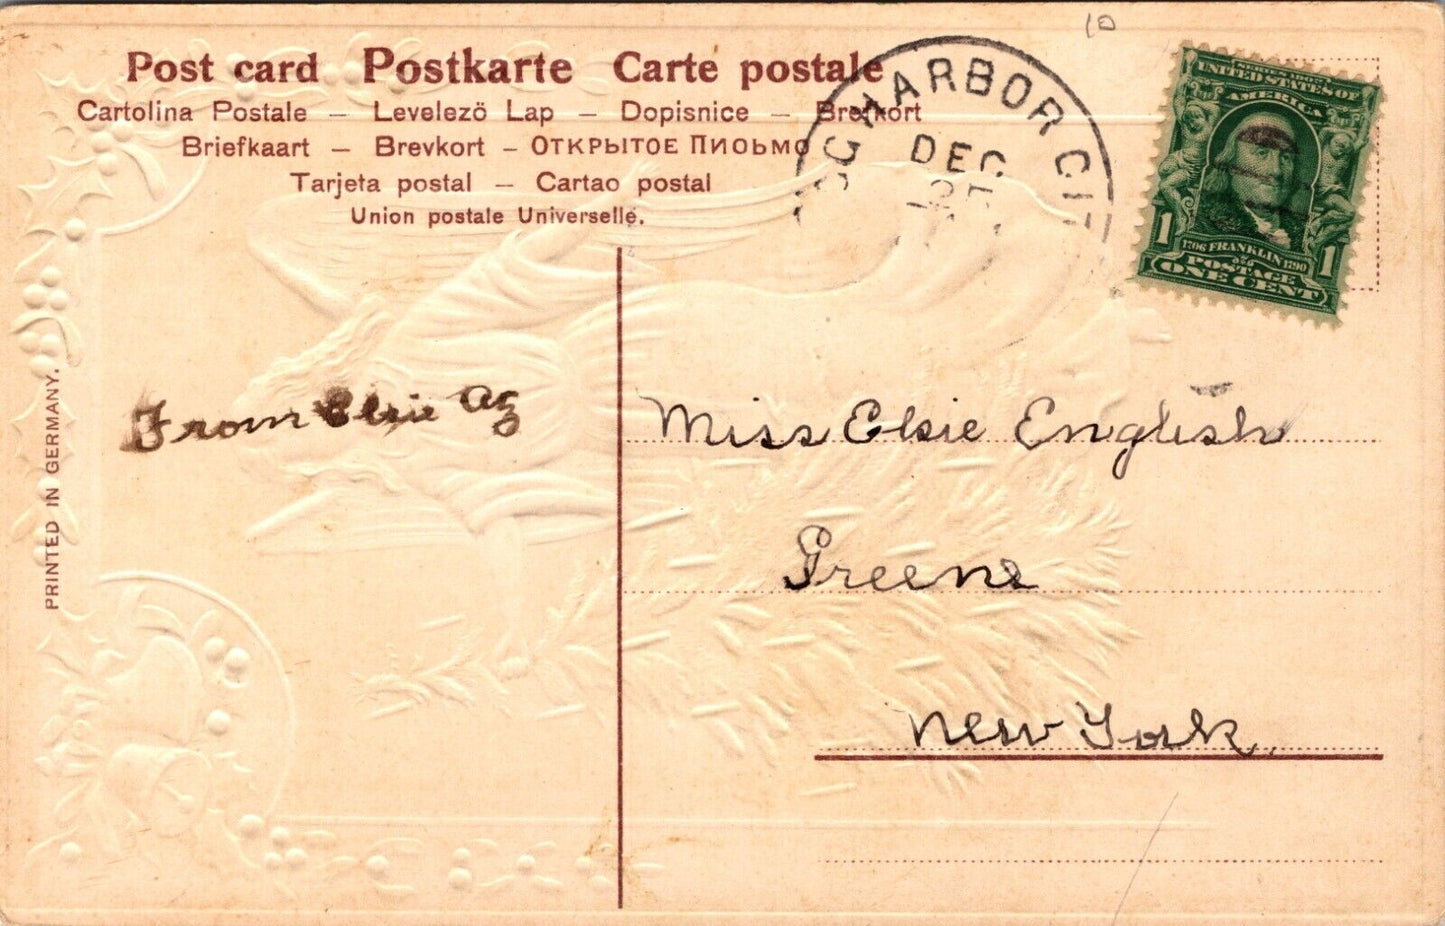 10
Post card Postkarte Carte postale
Cartolina Postale – Levelezö Lap – Dopisnice – Brefkort
Briefkaart – Brevkort – ОТКРЫТОЕ ПИСЬМО
Tarjeta postal – Cartao postal
Union postale Universelle.
GG HARBOR CIT
DEC
SERIES 1902
UNITED STATES OF
AMERICA
1706 FRANKLIN 1790
1 POSTAGE 1
ONE CENT
PRINTED IN GERMANY.
From Elsie
Miss Elsie English
Greene
New York.